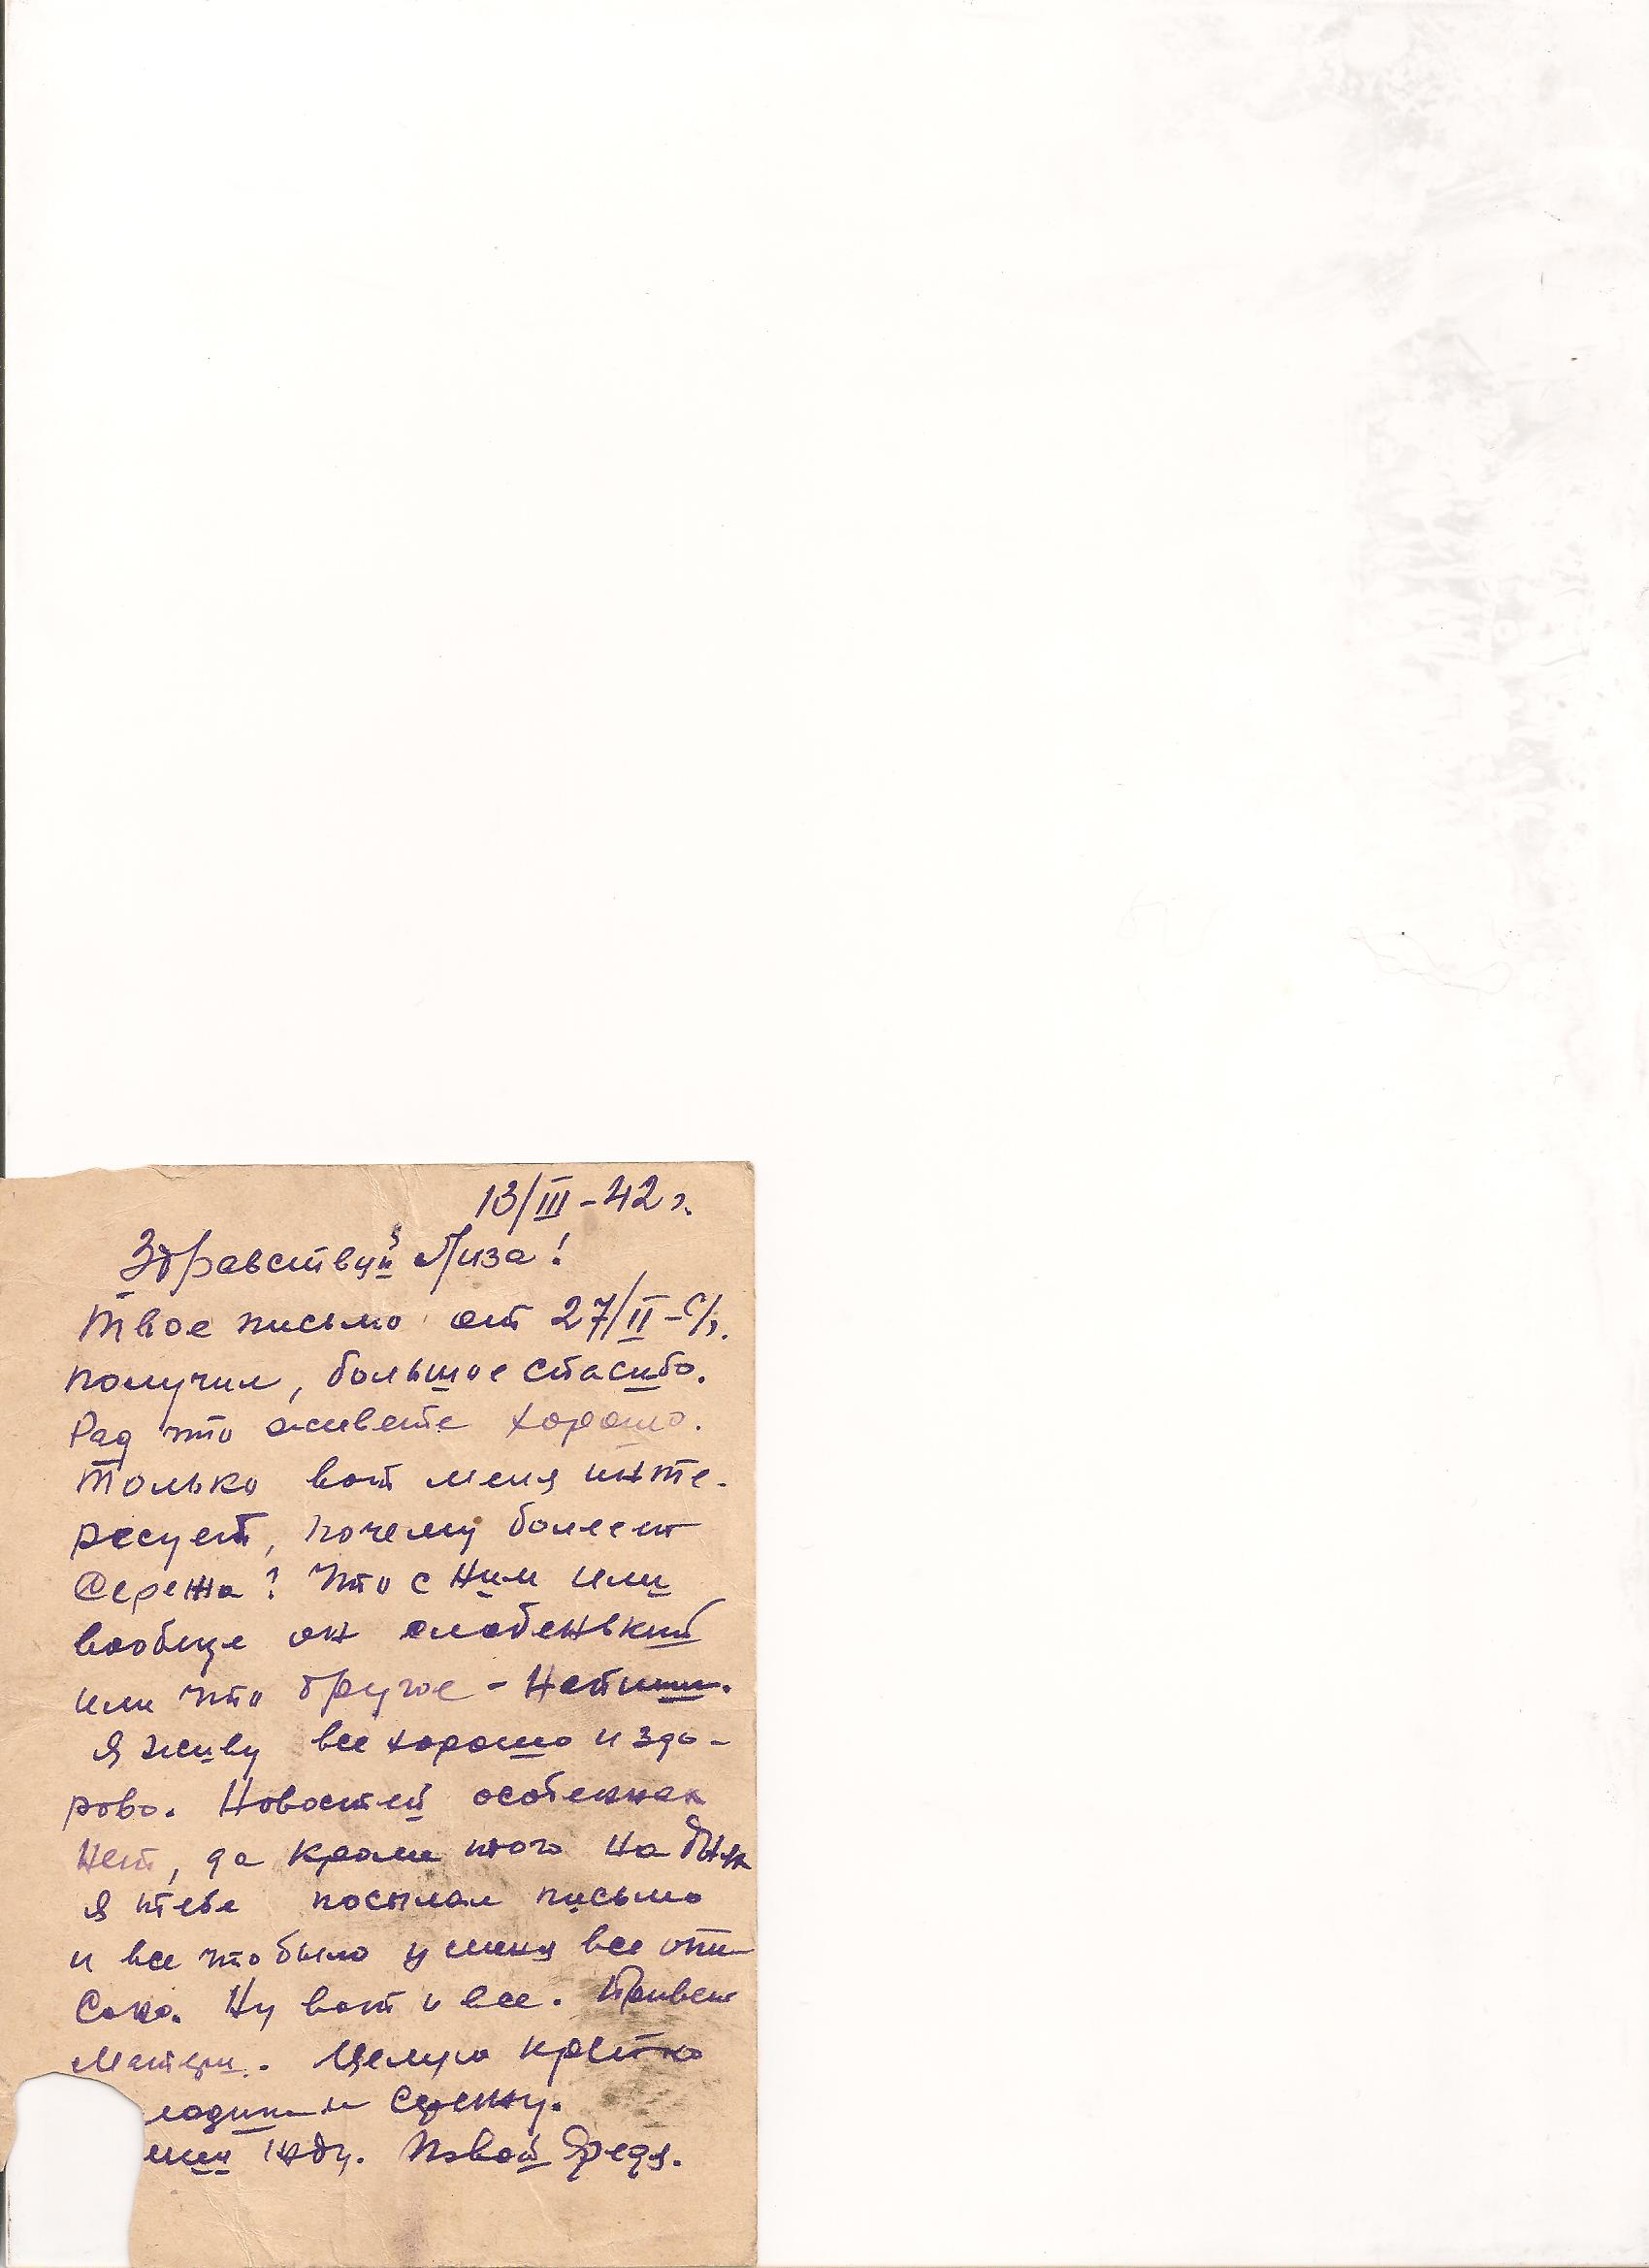 13/III-42 г.
Здравствуй Лиза!
Твое письмо от 27/II-с/г.
получил, большое спасибо.
Рад что живете хорошо.
Только вот меня инте-
ресует, почему болеет
Сережа? Что с ним или
вообще он слабенький
или что другое -
Я живу все хорошо и здо-
рово. Новостей особенных
нет, да кроме того на днях
я тебе послал письмо
и все что было у меня все опи
сано. Ну вот и все. Привет
Матери. Целую крепко
и Сережу.
жду. Твой Федя.